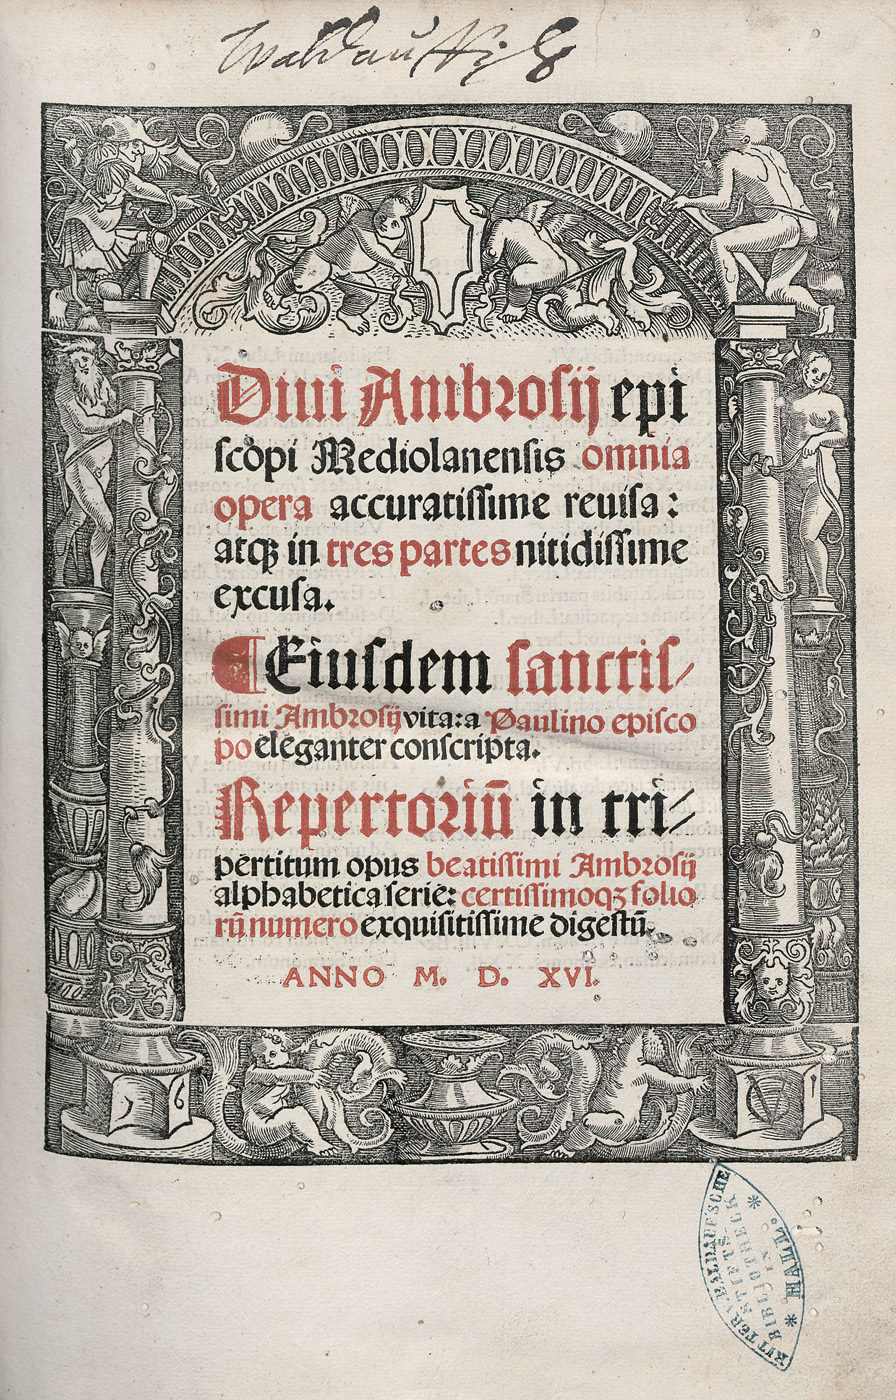 Diui Ambrosij epi
scopi Mediolanensis omnia
opera accuratissime reuisa:
atqꝫ in tres partes nitidissime
excusa.
¶ Eiusdem sanctis⸗
simi Ambrosij vita: a Paulino episco
po eleganter conscripta.
Repertoriū in tri⸗
pertitum opus beatissimi Ambrosij
alphabetica serie: certissimoqꝫ folio
rū numero exquisitissime digestū.
ANNO M. D. XVI.
RITTER V. WALDAUF'SCHE
STIFTS
BIBLIOTHECK
IN
* HALL. *